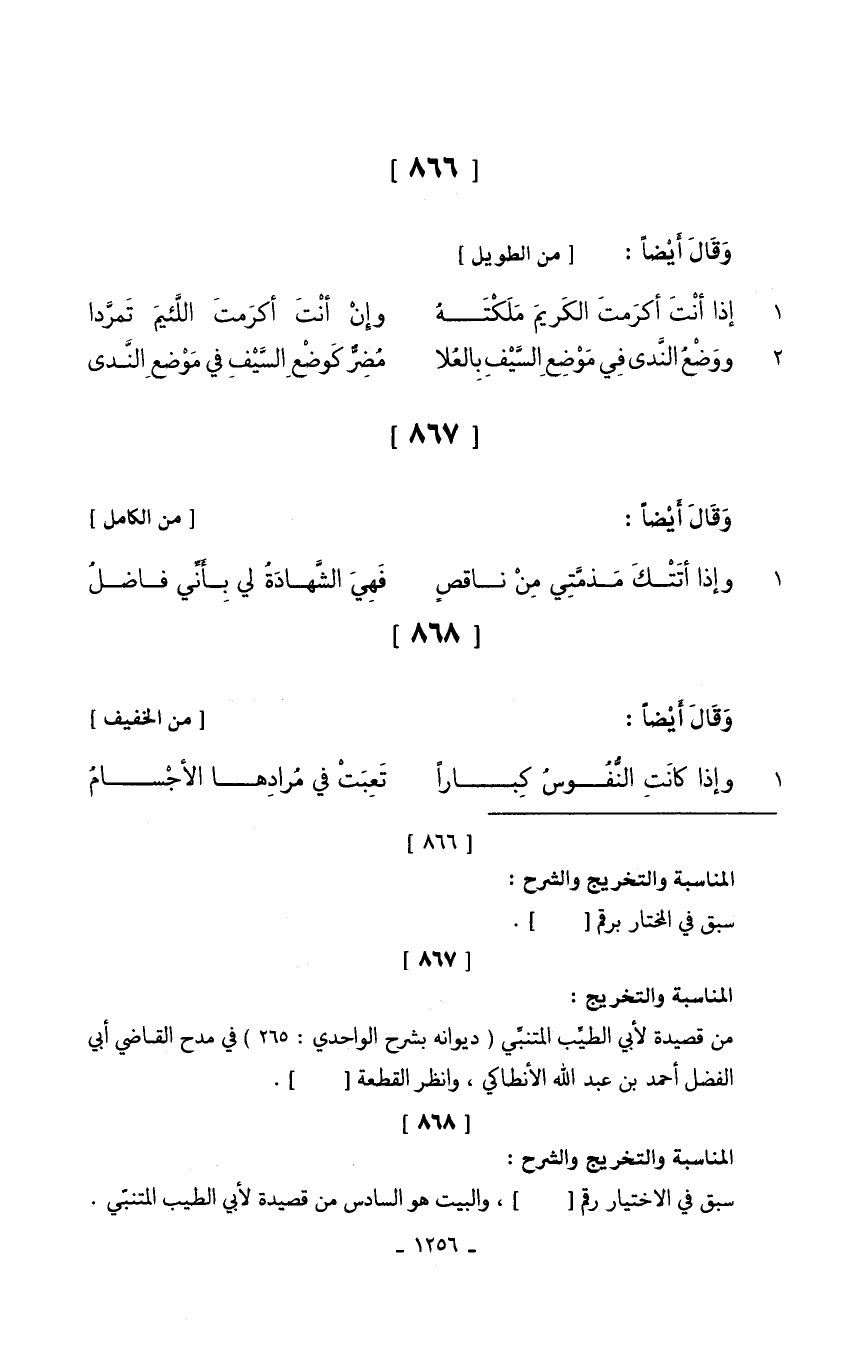 [ ٨٦٦ ]
وَقَالَ أَيْضاً : [ من الطويل ]
١ إذا أنْتَ أكرَمتَ الكَريمَ مَلَكْتَـــهُ وإنْ أنْتَ أكرَمتَ اللَّئيمَ تَمرَّدا
٢ ووَضْعُ النَّدى فِي مَوْضِعِ السَّيْفِ بِالعُلا مُضِرٌّ كَوضْعِ السَّيْفِ في مَوْضعِ النَّـدى
[ ٨٦٧ ]
وَقَالَ أَيْضاً : [ من الكامل ]
١ وإذا أتَتْـكَ مَـذمَّتِي مِنْ نـاقصٍ فَهِيَ الشَّهـادَةُ لي بِـأنِّي فـاضـلُ
[ ٨٦٨ ]
وَقَالَ أَيْضاً : [ من الخفيف ]
١ وإذا كانَتِ النُّفُــوسُ كِبــــاراً تَعِبَتْ في مُرادِهــا الأجْســـامُ
[ ٨٦٦ ]
المناسبة والتخريج والشرح :
سبق في المختار برقم [ ] .
[ ٨٦٧ ]
المناسبة والتخريج :
من قصيدة لأبي الطيِّب المتنبِّي ( ديوانه بشرح الواحدي : ٢٦٥ ) في مدح القـاضي أبي
الفضل أحمد بن عبد الله الأنطاكي ، وانظر القطعة [ ] .
[ ٨٦٨ ]
المناسبة والتخريج والشرح :
سبق في الاختيار رقم [ ] ، والبيت هو السادس من قصيدة لأبي الطيب المتنبّي .
ـ ١٢٥٦ ـ